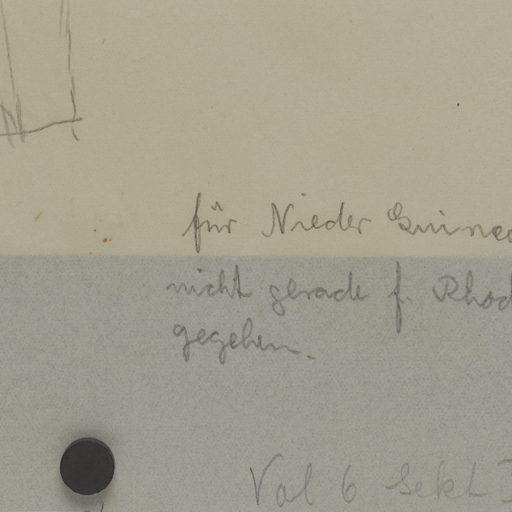 für Nieder Guinea
nicht gerade f. Rhod
gegeben.
Vol 6 Sekt I